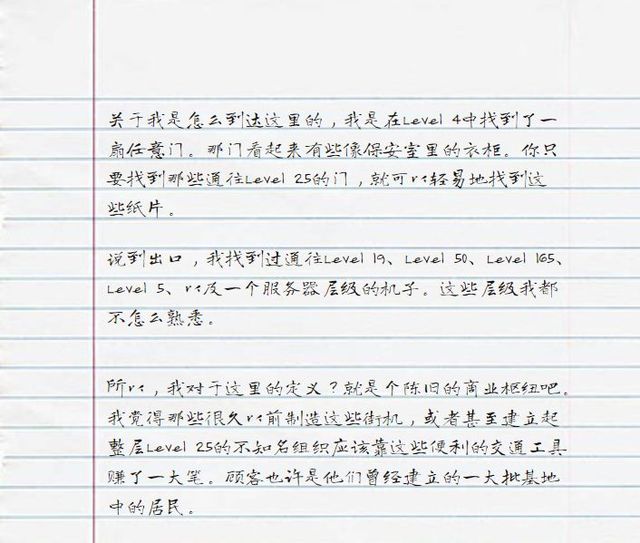 关于我是怎么到达这里的，我是在Level 4中找到了一
扇任意门。那门看起来有些像保安室里的衣柜。你只
要找到那些通往Level 25的门，就可以轻易地找到这
些纸片。
说到出口，我找到过通往Level 19、Level 50、Level 165、
Level 5、以及一个服务器层级的机子。这些层级我都
不怎么熟悉。
所以，我对于这里的定义？就是个陈旧的商业枢纽吧。
我觉得那些很久以前制造这些街机，或者甚至建立起
整层Level 25的不知名组织应该靠这些便利的交通工具
赚了一大笔。顾客也许是他们曾经建立的一大批基地
中的居民。